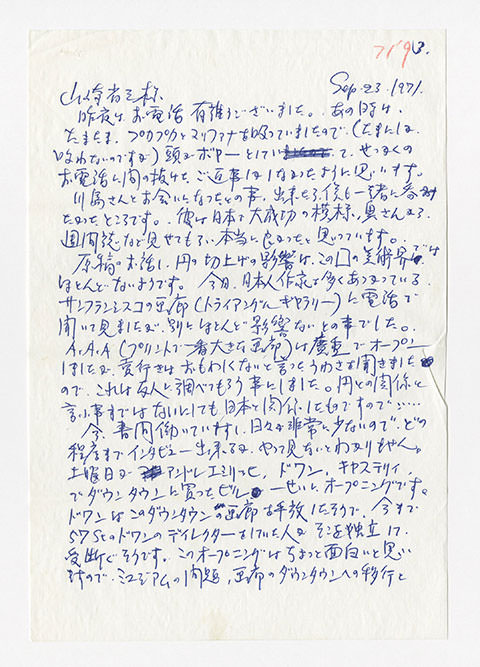 Sep. 23. 1971.
山崎省三様
昨夜は、お電話有難うございました。あの時は、
たまたま、プカプカとマリファナを吸っていましたので、(たまにしか
吸わないのですが)頭がボヤーとしていて、せっかくの
お電話に間の抜けたご返事ばしなかったように思います。
川島さんとお会いになったとの事、出来たら僕も一緒に
たかったところです。彼は日本で大成功の模様、奥さんから
週間誌など見せてもらい本当に良かったと思っています。
原稿のお話し、円の切上げの影響は、この国の美術界では
ほとんどないようです。今日、日本人作家を多くあつかっている
サンフランシスコの画廊(トライアングルギャラリー)に電話で
聞いて見ましたが、別にほとんど影響ないとの事でした。
A.A.A(プリントで一番大きな画廊)は東でオープン
しましたが、売行きはおもわしくないと言ううわさを聞きました
ので、これは友人に調べてもらう事にしました。円との関係と
言う事まではないにしても日本と関係したものですので……
今、昼間働いていますし、日々が非常に少ないので、どの
程度までインタビュー出来るか、やって見ないとわかりません。
土曜日にアンドレエミリッヒ、ドワン、キャステリィ、
でダウンタウンに買ったビル一せいにオープニングです。
ドワンはこのダウンタウンの画廊を手放したそうで、今まで
57Stのドワンのディレクターをしていた人がそこを独立して
受継ぐそうです。このオープニングはちょっと面白いと思い
ますので、ミュージアムの問題、画廊のダウンタウンへの移行と